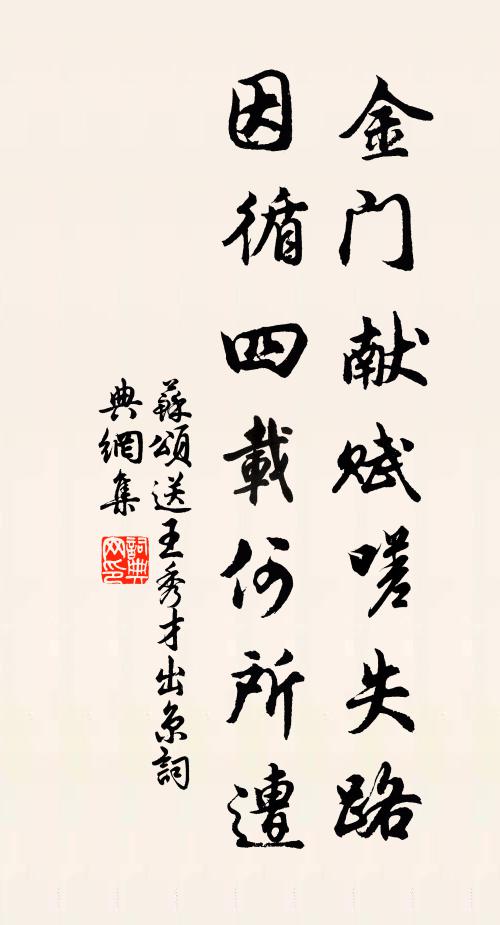 金门献赋嗟失路
因循四載何所遭
蘇頌送王秀才出京詞
典網集
詞典网印